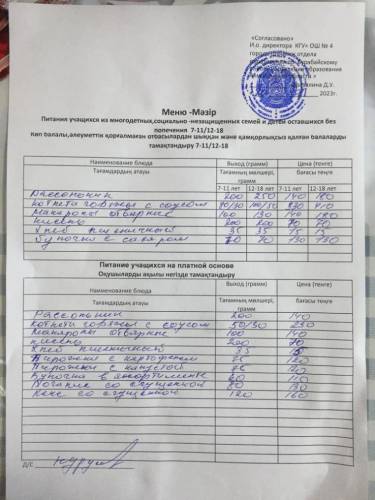 «Согласовано»
И.о. директора КГУ« ОШ № 4
2023г.
Меню -Мәзір
Питания учащихся из многодетных,социально -незащищенных семей и детей оставшихся без
попечения 7-11/12-18
көп балалы,әлеуметтік қорғалмаған отбасылардан шыққан және қамқорлықсыз қалған балаларды
тамақтандыру 7-11/12-18
Наименование блюда Выход (грамм) Цена (тенге)
Тағамдардың атауы Тағамның мөлшері, грамм бағасы теңге
7-11 лет 12-18 лет 7-11 лет 12-18 лет
Рассольник 200 250 140 180
Котлета говяжья с соусом
Макароны отварные 100 130 140 180
кисель 200 200 70 70
Хлеб пшеничный 35 35 15 15
Булочка с сахаром 70 70 130 130
Питание учащихся на платной основе
Оқушыларды ақылы негізде тамақтандыру
Наименование блюда Выход (грамм) Цена (тенге)
Тағамдардың атауы Тағамның мөлшері, грамм бағасы теңге
Рассольник 200 140
Котлета говяжья с соусом 50/30 230
Макароны отварные 100 140
кисель 200 70
Хлеб пшеничный 35 15
Пирожки с картофелем 75 120
Пирожки с капустой 75
Булочка в ассортименте 60 110
Погание со сгущенкой 80 130
Кекс со сгущенкой 120 160
Д/С